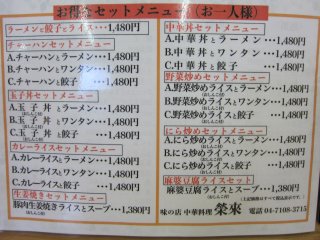 お得なセットメニュー(お一人様)
ラーメンと餃子とライス・・・1,480円
チャーハンセットメニュー
A.チャーハンとラーメン・・・・1,480円
B.チャーハンとワンタン・・・・1,480円
C.チャーハンと餃子・・・・・1,480円
玉子丼セットメニュー
A.玉子丼とラーメン・・・・1,480円
B.玉子丼とワンタン・・・・1,480円
C.玉子丼と餃子・・・・・1,480円
カレーライスセットメニュー
A.カレーライスとラーメン・・・1,480円
B.カレーライスとワンタン・・・1,480円
C.カレーライスと餃子・・・・1,480円
生姜焼きセットメニュー
豚肉生姜焼きライスとスープ・・・1,380円
中華丼セットメニュー
A.中華丼とラーメン・・・・1,480円
B.中華丼とワンタン・・・・1,480円
C.中華丼と餃子・・・・・1,480円
野菜炒めセットメニュー
A.野菜炒めライスとラーメン・・1,480円
B.野菜炒めライスとワンタン・・1,480円
C.野菜炒めライスと餃子・・・1,480円
にら炒めセットメニュー
A.にら炒めライスとラーメン・・1,480円
B.にら炒めライスとワンタン・・1,480円
C.にら炒めライスと餃子・・・1,480円
麻婆豆腐ライスセット
麻婆豆腐ライスとスープ・・・・1,380円
味の店 中華料理 榮來 電話 04-7108-3715